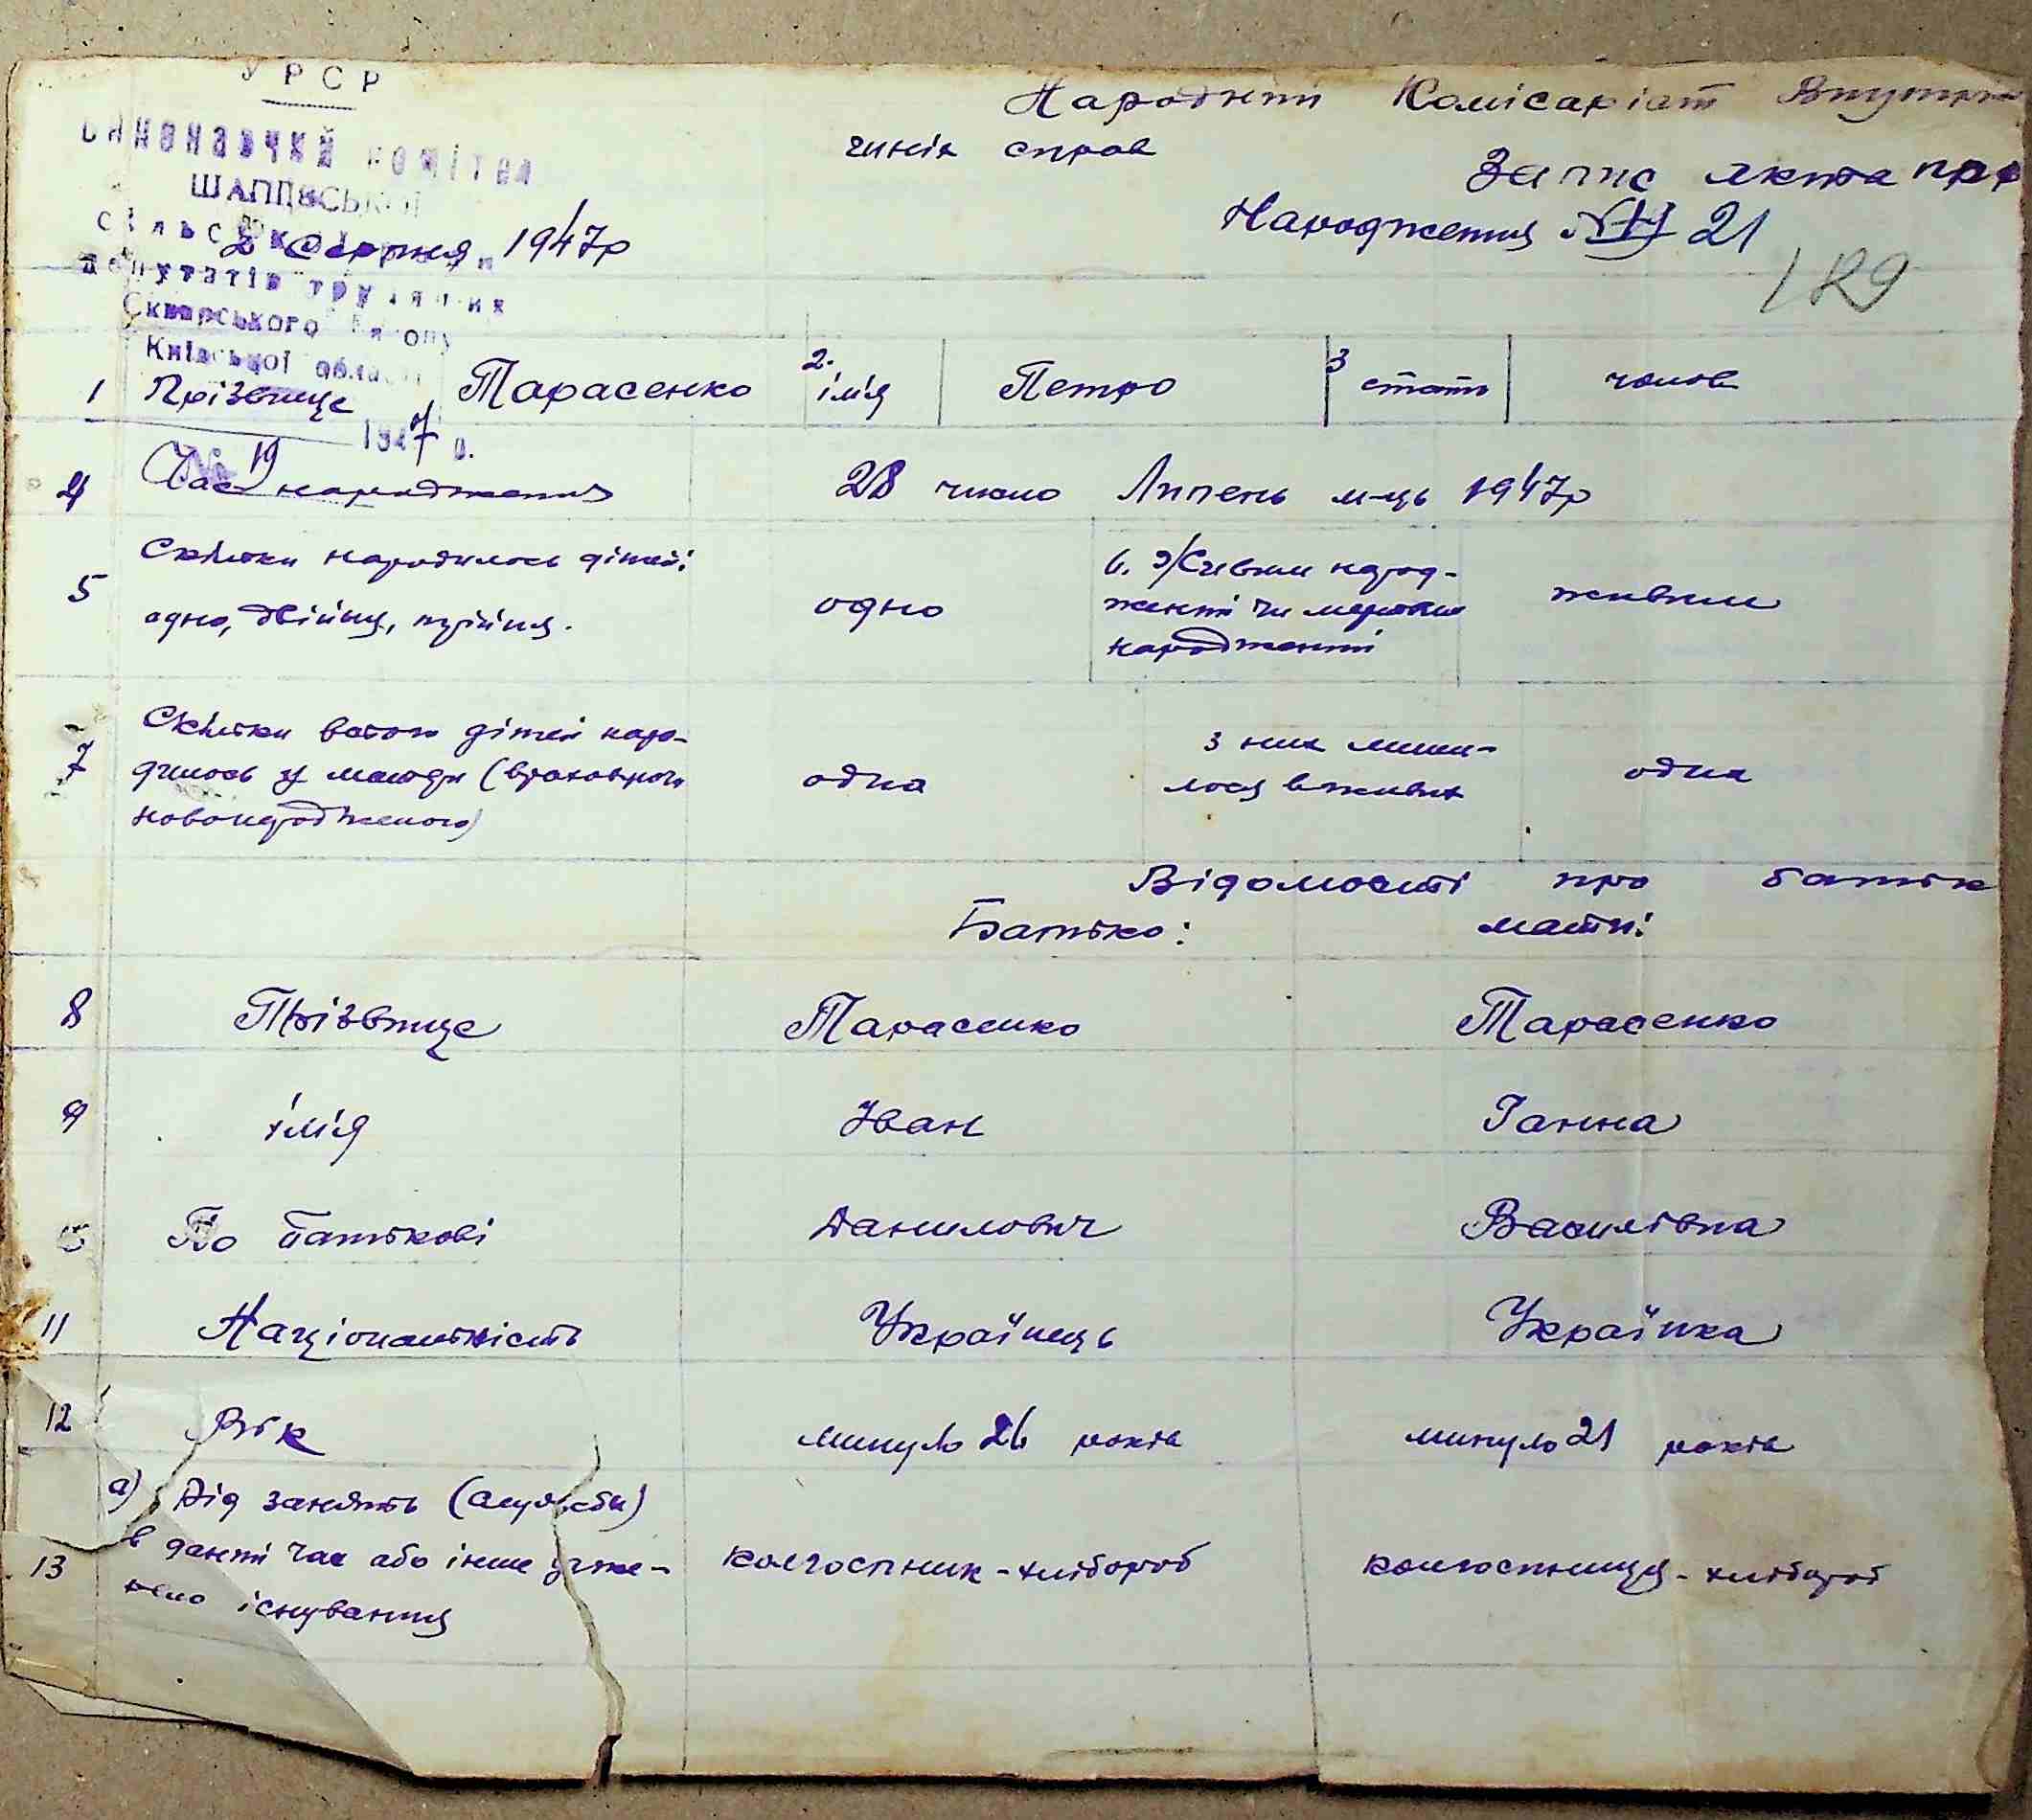 УРСР
Виконавчий комітет
ШАПІЇВСЬКОЇ
сільської
депутатів трудящих
Сквирського району
Київської області
1947 р.
№ 19
Народний Комісаріат Внутрі
чиніх справ
Запис акта про
Народження № 21
2 Серпня 1947р
129
1 Прізвище Тарасенко 2. ім'я Петро 3 стать чолов
4 Час народження 28 число Липень м-ць 1947р
5 Скільки народилось дітей: одно 6. Живим народ- живим
одно, двійня, трійня. жені чи мертвим
народжені
7 Скільки всього дітей наро- одна з них лиши- одна
дилось у матери (враховуючи лося в живих
новонародженого)
Відомості про батьк
Батько: мати:
8 Прізвище Тарасенко Тарасенко
9 ім'я Іван Ганна
10 По батькові Данилович Василівна
11 Національність Українець Українка
12 Вік минуло 26 років минуло 21 років
13 а) Від занять (служби) колгоспник-хлібороб колгоспниця-хлібороб
в даний час або інше
існування